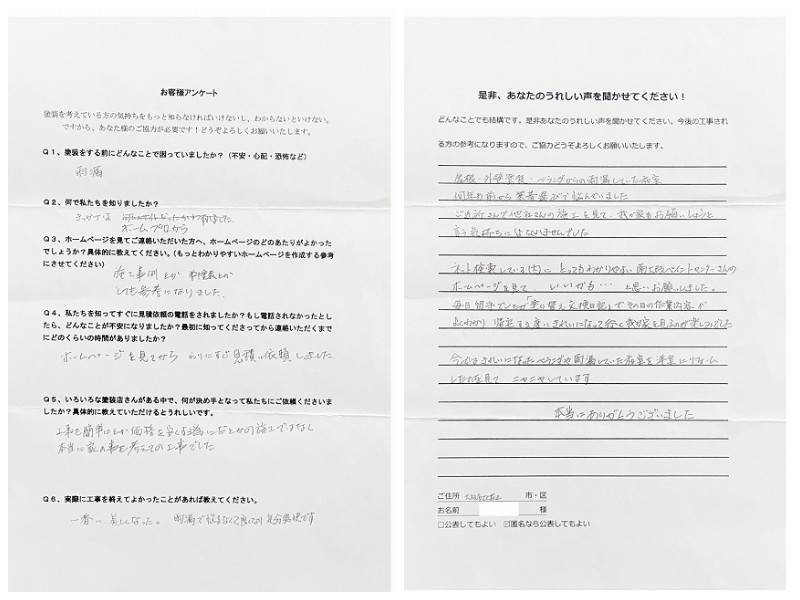 お客様アンケート
塗装を考えている方の気持ちをもっと知らなければいけないし、わからないといけない。
ですから、あなた様のご協力が必要です!どうぞよろしくお願いいたします。
Q1、塗装をする前にどんなことで困っていましたか?(不安・心配・恐怖など)
雨漏
Q2、何で私たちを知りましたか?
ホームプロから
Q3、ホームページを見てご連絡いただいた方へ、ホームページのどのあたりがよかった
でしょうか?具体的に教えてください。(もっとわかりやすいホームページを作成する参考
にさせてください)
施工事例とか 料金表とか
とても参考になりました。
Q4、私たちを知ってすぐに見積依頼の電話をされましたか?もし電話されなかったとし
たら、どんなことが不安になりましたか?最初に知ってくださってから連絡いただくまで
にどのくらいの時間がありましたか?
ホームページを見てから わりにすぐ見積に依頼しました
Q5、いろいろな塗装店さんがある中で、何が決め手となって私たちにご依頼くださいま
したか?具体的に教えていただけるとうれしいです。
工事を簡単にとか価格を安くする為になどかの施工ではなく
本当に家の事を考えての工事でした
Q6、実際に工事を終えてよかったことがあれば教えてください。
一番に美しくなった。雨漏で悩まなくて良くなり
是非、あなたのうれしい声を聞かせてください!
どんなことでも結構です。是非あなたのうれしい声を聞かせてください。今後の工事され
る方の参考になりますので、ご協力どうぞよろしくお願いいたします。
屋根・外壁塗装・ベランダからの雨漏していた和室
何年か前から業者選びで悩んでいました
ご近所さんで他社さんの施工を見て、我が家をお願いしようと
言う気持ちにはなれませんでした
ネット検索している内に とってもわかりやすい ペイントセンターさんの
ホームページを見て、いいかも… と思いお願いしました。
毎日留守でしたが「塗り替え交換日記」でその日の作業内容が
よくわかり 帰宅する度にきれいになって行く我が家を見るのが楽しみでした
今ではきれいになったベランダや雨漏していた和室を洋室にリフォーム
したのを見て ニヤニヤしています
本当にありがとうございました
ご住所 市・区
お名前 様
□公表してもよい ☑匿名なら公表してもよい